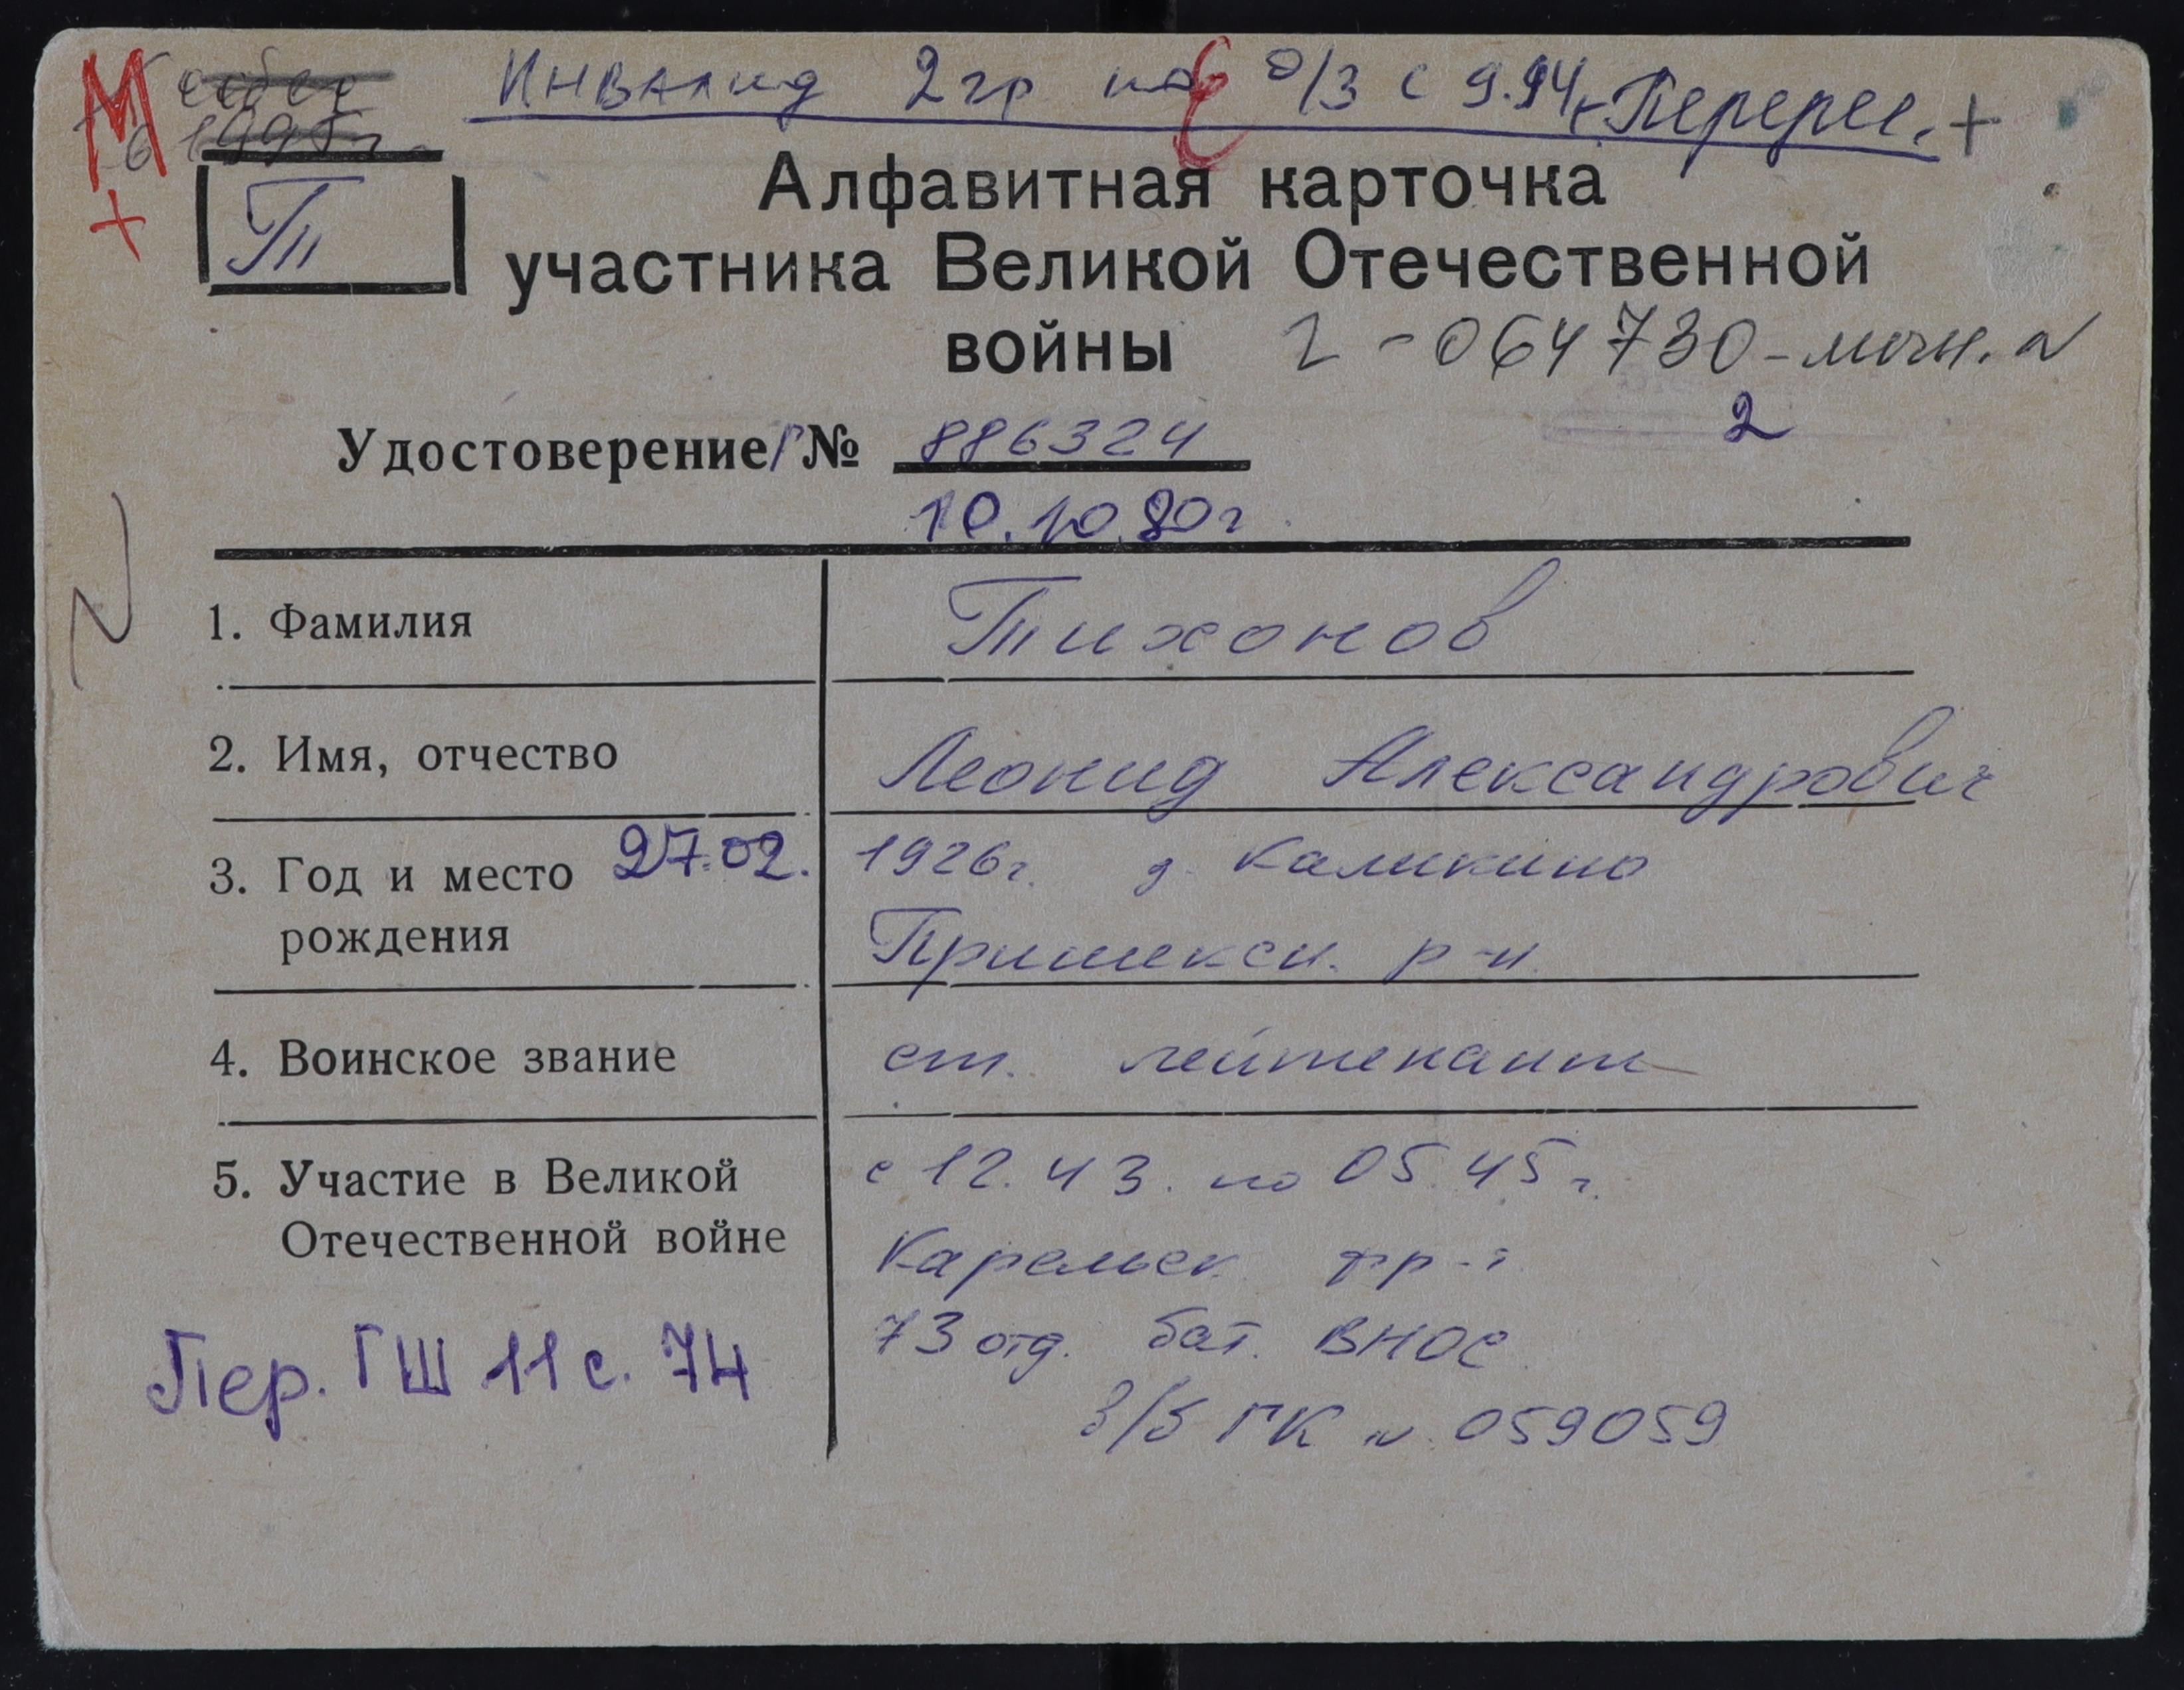 М
+
Инвалид 2 гр по о/з с 9.94г Перерег. +
Т
Алфавитная карточка
участника Великой Отечественной
войны
Г-064730
2
Удостоверение Г №
886324
10.10.80г
1. Фамилия
Тихонов
2. Имя, отчество
Леонид Александрович
3. Год и место рождения
27.02. 1926г. д. Каликино
Пришекси. р-н
4. Воинское звание
ст. лейтенант
5. Участие в Великой Отечественной войне
с 12.43. по 05.45г.
Карельск. фр-т
73 отд. бат. ВНОС
В/Б ГК № 059059
Пер. ГШ 11 с. 74